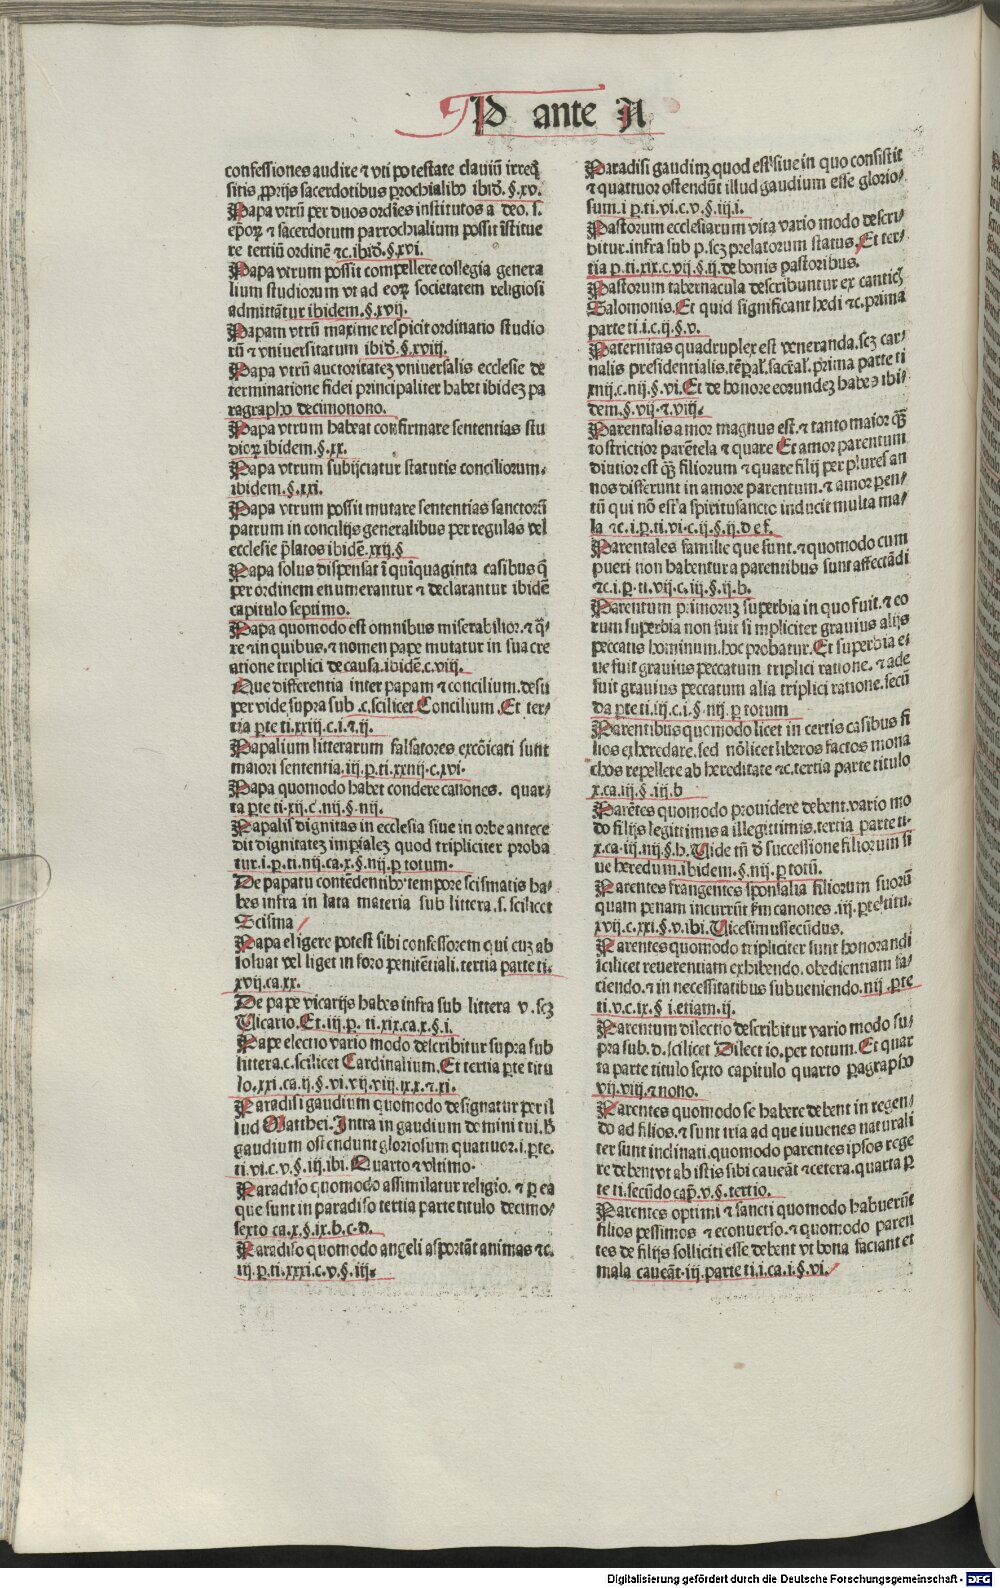 P ante A
confessiones audire ⁊ vti potestate clauiū irreq̄
sitis ꝓprijs sacerdotibus prochialibꝰ ibid̄. §. xv.
Papa vtrū per duos ordīes institutos a deo. s.
ep̄oꝝ ⁊ sacerdotum parrochialium possit īstitue
re tertiū ordinē ⁊c. ibid̄. §. xvi.
Papa vtrum possit compellere collegia genera
lium studiorum vt ad eoꝝ societatem religiosi
admittātur ibidem. §. xvij.
Papam vtrū maxime respicit ordinatio studio
rū ⁊ vniuersitatum ibid̄. §. xviij.
Papa vtrū auctoritateꝫ vniuersalis ecclesie de
terminatione fidei principaliter habet ibideꝫ pa
ragrapho decimonono.
Papa vtrum habeat confirmare sententias stu
dioꝝ ibidem. §. xx.
Papa vtrum subijciatur statutis conciliorum.
ibidem. §. xxi.
Papa vtrum possit mutare sententias sanctorū
patrum in concilijs generalibus per regulas vel
ecclesie p̄latos ibidē. xxij. §
Papa solus dispensat ī quīquaginta casibus q̄
per ordinem enumerantur ⁊ declarantur ibidē
capitulo septimo.
Papa quomodo est omnibus miserabilior. ⁊ q̄-
re ⁊ in quibus. ⁊ nomen pape mutatur in sua cre
atione triplici de causa. ibidē. c. viij.
Que differentia inter papam ⁊ concilium. desu
per vide supra sub .c. scilicet Concilium. Et ter-
tia ꝑte ti. xxiij. c. i. ⁊. ij.
Papalium litterarum falsatores excōicati sunt
maiori sententia. iij. p. ti. xxiiij. c. xvi.
Papa quomodo habet condere canones. quar-
ta ꝑte ti. xij. c. iiij. §. iiij.
Papalis dignitas in ecclesia siue in orbe antece
dit dignitateꝫ imꝑialeꝫ quod tripliciter proba
tur. i. p. ti. iiij. ca. x. §. iiij. ꝑ totum.
De papatu contēdentibꝰ tempore scismatis ha-
bes infra in lata materia sub littera. s. scilicet
Scisma
Papa eligere potest sibi confessorem qui cuꝫ ab
soluat vel liget in foro penitētiali. tertia parte ti.
xvij. ca. xx.
De pape vicarijs habes infra sub littera v. scꝫ
Uicario. Et. iij. p. ti. xix. ca. x. §. i.
Pape electio vario modo describitur supra sub
littera. c. scilicet Cardinalium. Et tertia ꝑte titu
lo. xxi. ca. ij. §. vi. vij. viij. ix. x. ⁊. xi.
Paradisi gaudium quomodo designatur per il
lud Matthei. Intra in gaudium domini tui. Et
gaudium ostendunt gloriosum quatuor. i. ꝑte.
ti. vi. c. v. §. iij. ibi. Quarto ⁊ vltimo.
Paradiso quomodo assimilatur religio. ⁊ ꝑ ea
que sunt in paradiso tertia parte titulo decimo-
sexto ca. x. §. ix. b. c. d.
Paradiso quomodo angeli asportāt animas ⁊c.
iij. p. ti. xxxi. c. v. §. iij.
Paradisi gaudiuꝫ quod est siue in quo consistit
⁊ quattuor ostendūt illud gaudium esse glorio-
sum. i p. ti. vi. c. v. §. iij. i.
Pastorum ecclesiarum vita vario modo descri-
bitur. infra sub p. scꝫ prelatorum status. Et ter-
tia p. ti. xix. c. vij. §. ij. de bonis pastoribus.
Pastorum tabernacula describuntur ex canticꝭ
Salomonis. Et quid significant hedi ⁊c. prima
parte ti. i. c. ij. §. v.
Paternitas quadruplex est veneranda. scꝫ car-
nalis presidentialis. tēꝑal. sac̄al. prima parte ti
xiiij. c. iiij. §. vi. Et de honore eorundeꝫ habes ibi-
dem. §. vij. ⁊. viij.
Parentalis amor magnus est. ⁊ tanto maior q̄ȝ
to strictior parētela ⁊ quare Et amor parentum
diutior est q̄ȝ filiorum ⁊ quare filij per plures an
nos differunt in amore parentum. ⁊ amor pen-
tū qui nō est a spiritusancto inducit multa ma-
la ⁊c. i. p. ti. vi. c. ij. §. ij. d e f.
Parentales familie que sunt. ⁊ quomodo cum
pueri non habentur a parentibus sunt affectādi
⁊c. i. p. ti. vij. c. iij. §. ij. b.
Parentum primoruꝫ superbia in quo fuit. ⁊ eo
rum superbia non fuit simpliciter grauius alijs
peccatis hominum. hoc probatur. Et superbia e-
ue fuit grauius peccatum triplici ratione. ⁊ ade
fuit grauius peccatum alia triplici ratione. secū
da ꝑte ti. iij. c. i. §. iiij. ꝑ totum
Parentibus quomodo licet in certis casibus fi
lios exheredare. sed nō licet liberos factos mona
chos repellere ab hereditate ⁊c. tertia parte titulo
x. ca. iij. §. iij. b
Parētes quomodo prouidere debent. vario mo
do filijs legittimis a illegittimis. tertia parte ti.
x. ca. iij. iiij. §. b. Uide tn̄ d̄ successione filiorum si
ue heredum. ibidem. §. iiij. ꝑ totū.
Parentes frangentes sponsalia filiorum suorū
quam penam incurrūt ẜm canones. iij. ꝑte titu.
xvij. c. xxi. §. v. ibi. Uicesimussecūdus.
Parentes quomodo tripliciter sunt honorandi
scilicet reuerentiam exhibendo. obedientiam fa-
ciendo. ⁊ in necessitatibus subueniendo. iiij. ꝑte
ti. v. c. ix. § i. etiam. ij.
Parentum dilectio describitur vario modo su-
pra sub. d. scilicet Dilectio. per totum. Et quar
ta parte titulo sexto capitulo quarto ꝑagrapho
vij. viij. ⁊ nono.
Parentes quomodo se habere debent in regen-
do ad filios. ⁊ sunt tria ad que iuuenes naturali
ter sunt inclinati. quomodo parentes ipsos rege
re debent vt ab istis sibi caueāt ⁊cetera. quarta ꝑ
te ti. secūdo cap̄. v. §. tertio.
Parentes optimi ⁊ sancti quomodo habuerūt
filios pessimos ⁊ econuerso. ⁊ quomodo paren
tes de filijs solliciti esse debent vt bona faciant et
mala caueāt. iij. parte ti. i. ca. i. §. vi.
Digitalisierung gefördert durch die Deutsche Forschungsgemeinschaft - DFG